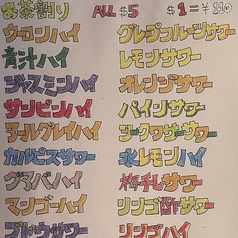 お茶割り ALL $5 $1=¥110
ウーロンハイ
青汁ハイ
ジャスミンハイ
サンピンハイ
アールグレイハイ
カルピスサワー
グァバハイ
マンゴーハイ
ブドウサワー
グレープフルーツサワー
レモンサワー
オレンジサワー
パインサワー
シークワーサーサワー
氷レモンハイ
梅干しサワー
リンゴ酢サワー
リンゴハイ